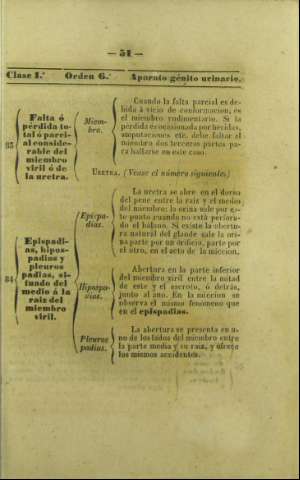 — 51 —
Clase 1.ª Orden 6.ª Aparato génito urinario.
83
Falta ó
pérdida to-
tal ó parci-
al conside-
rable del
miembro
viril ó de
la uretra.
Miem-
bro.
Cuando la falta parcial es de-
bida á vicio de conformacion, es
el miembro rudimentario. Si la
pérdida es ocasionada por heridas,
amputaciones etc. debe faltar al
miembro dos terceras partes pa-
ra hallarse en este caso.
URETRA. (Vease el número siguiente.)
84
Epispadi-
as, hipos-
padias y
pleuros
padias, si-
tuado del
medio á la
raiz del
miembro
viril.
Epispa-
dias.
La uretra se abre en el dorso
del pene entre la raiz y el medio
del miembro; la orina sale por es-
te punto cuando no está perfora-
do el bálano. Si existe la obertu-
ra natural del glande sale la ori-
na parte por un orificio, parte por
el otro, en el acto de la miccion.
Hipospa-
dias.
Abertura en la parte inferior
del miembro viril entre la mitad
de este y el escroto, ó detrás,
junto al ano. En la miccion se
observa el mismo fenómeno que
en el epispadias.
Pleuros
padias.
La abertura se presenta en u-
no de los lados del miembro entre
la parte media y su raiz, y ofrece
los mismos accidentes.